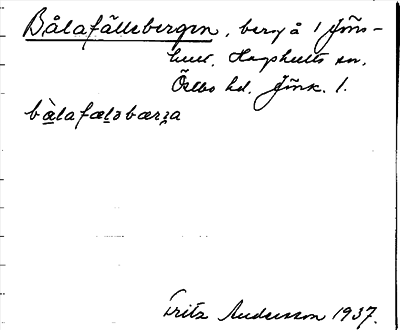 Bålafällebergen, berg å 1 Jöns-
hult, Hagshults sn,
Östbo hd. Jönk. l.
bàlafælɔbærʒa
Fritz Andersson 1937.